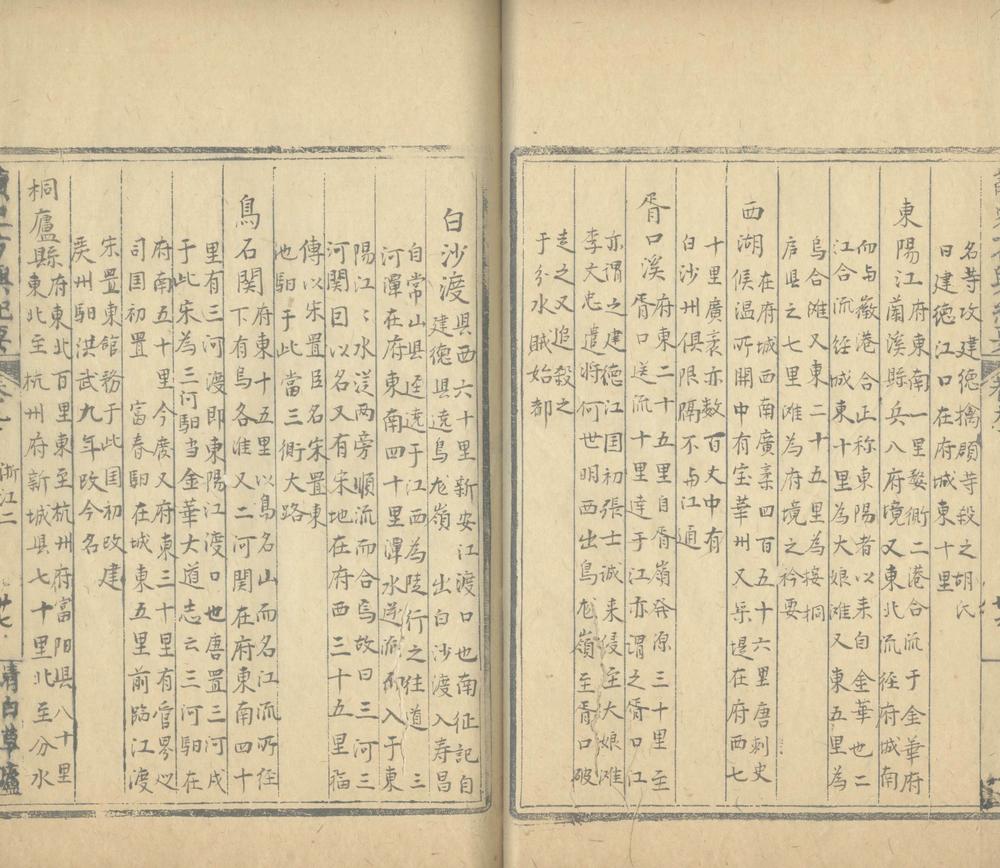 名等攻建德擒顧等殺之胡氏
曰建德江口在府城東十里
東陽江府東南一里婺衢二港合流于金華府
蘭溪縣兵八府境又東北流徑府城南
而与徽港合正称東陽者以来自金華也二
江合流徑城東十里為大娘滩又東五里為
烏合滩又東二十五里為接桐
庐县之七里滩为府境之衿要
西湖在府城西南廣袤四百五十六里唐刺史
侯温所開中有宝華州又
堤在府西七
十里廣袤亦数百丈中有
白沙州俱限隔不与江通
胥口溪府東二十五里自胥嶺発源三十里至
胥口迳流十里達于江亦谓之胥口江
亦谓之建德江国初張士诚来侵至大娘滩
李文忠遣将何世明西出烏龙嶺至胥口破
走之又追殺之
于分水賊始却
白沙渡县西六十里新安江渡口也南征記自
建德县遶烏龙嶺出白沙渡入寿昌
自常山县迳遶于江西為陸行之徃道三
河潭在府東南四十里潭水逆流而入于東
陽江江水從两旁順流而合焉故曰三河三
河関因以名又有宋地在府西三十五里
傳以宋置臣名宋置東
池馹于此當三衢大路
烏石関府東十五里以烏名山而名江流所径
下有烏各淮又二河関在府東南四十
里有三河渡即東陽江渡口也唐置三河戍
于此宋為三河馹当金華大道志云三河馹在
府南五十里今廣又府東三十里有管界
司国初置富春馹在城東五里前臨江渡
宋置東館務于此国初改建
炭州馹洪武九年改今名
桐廬縣府東北百里東至杭州府富阳县八十里
東北至杭州府新城县七十里北至分水
浙江二
廿七
清白草廬